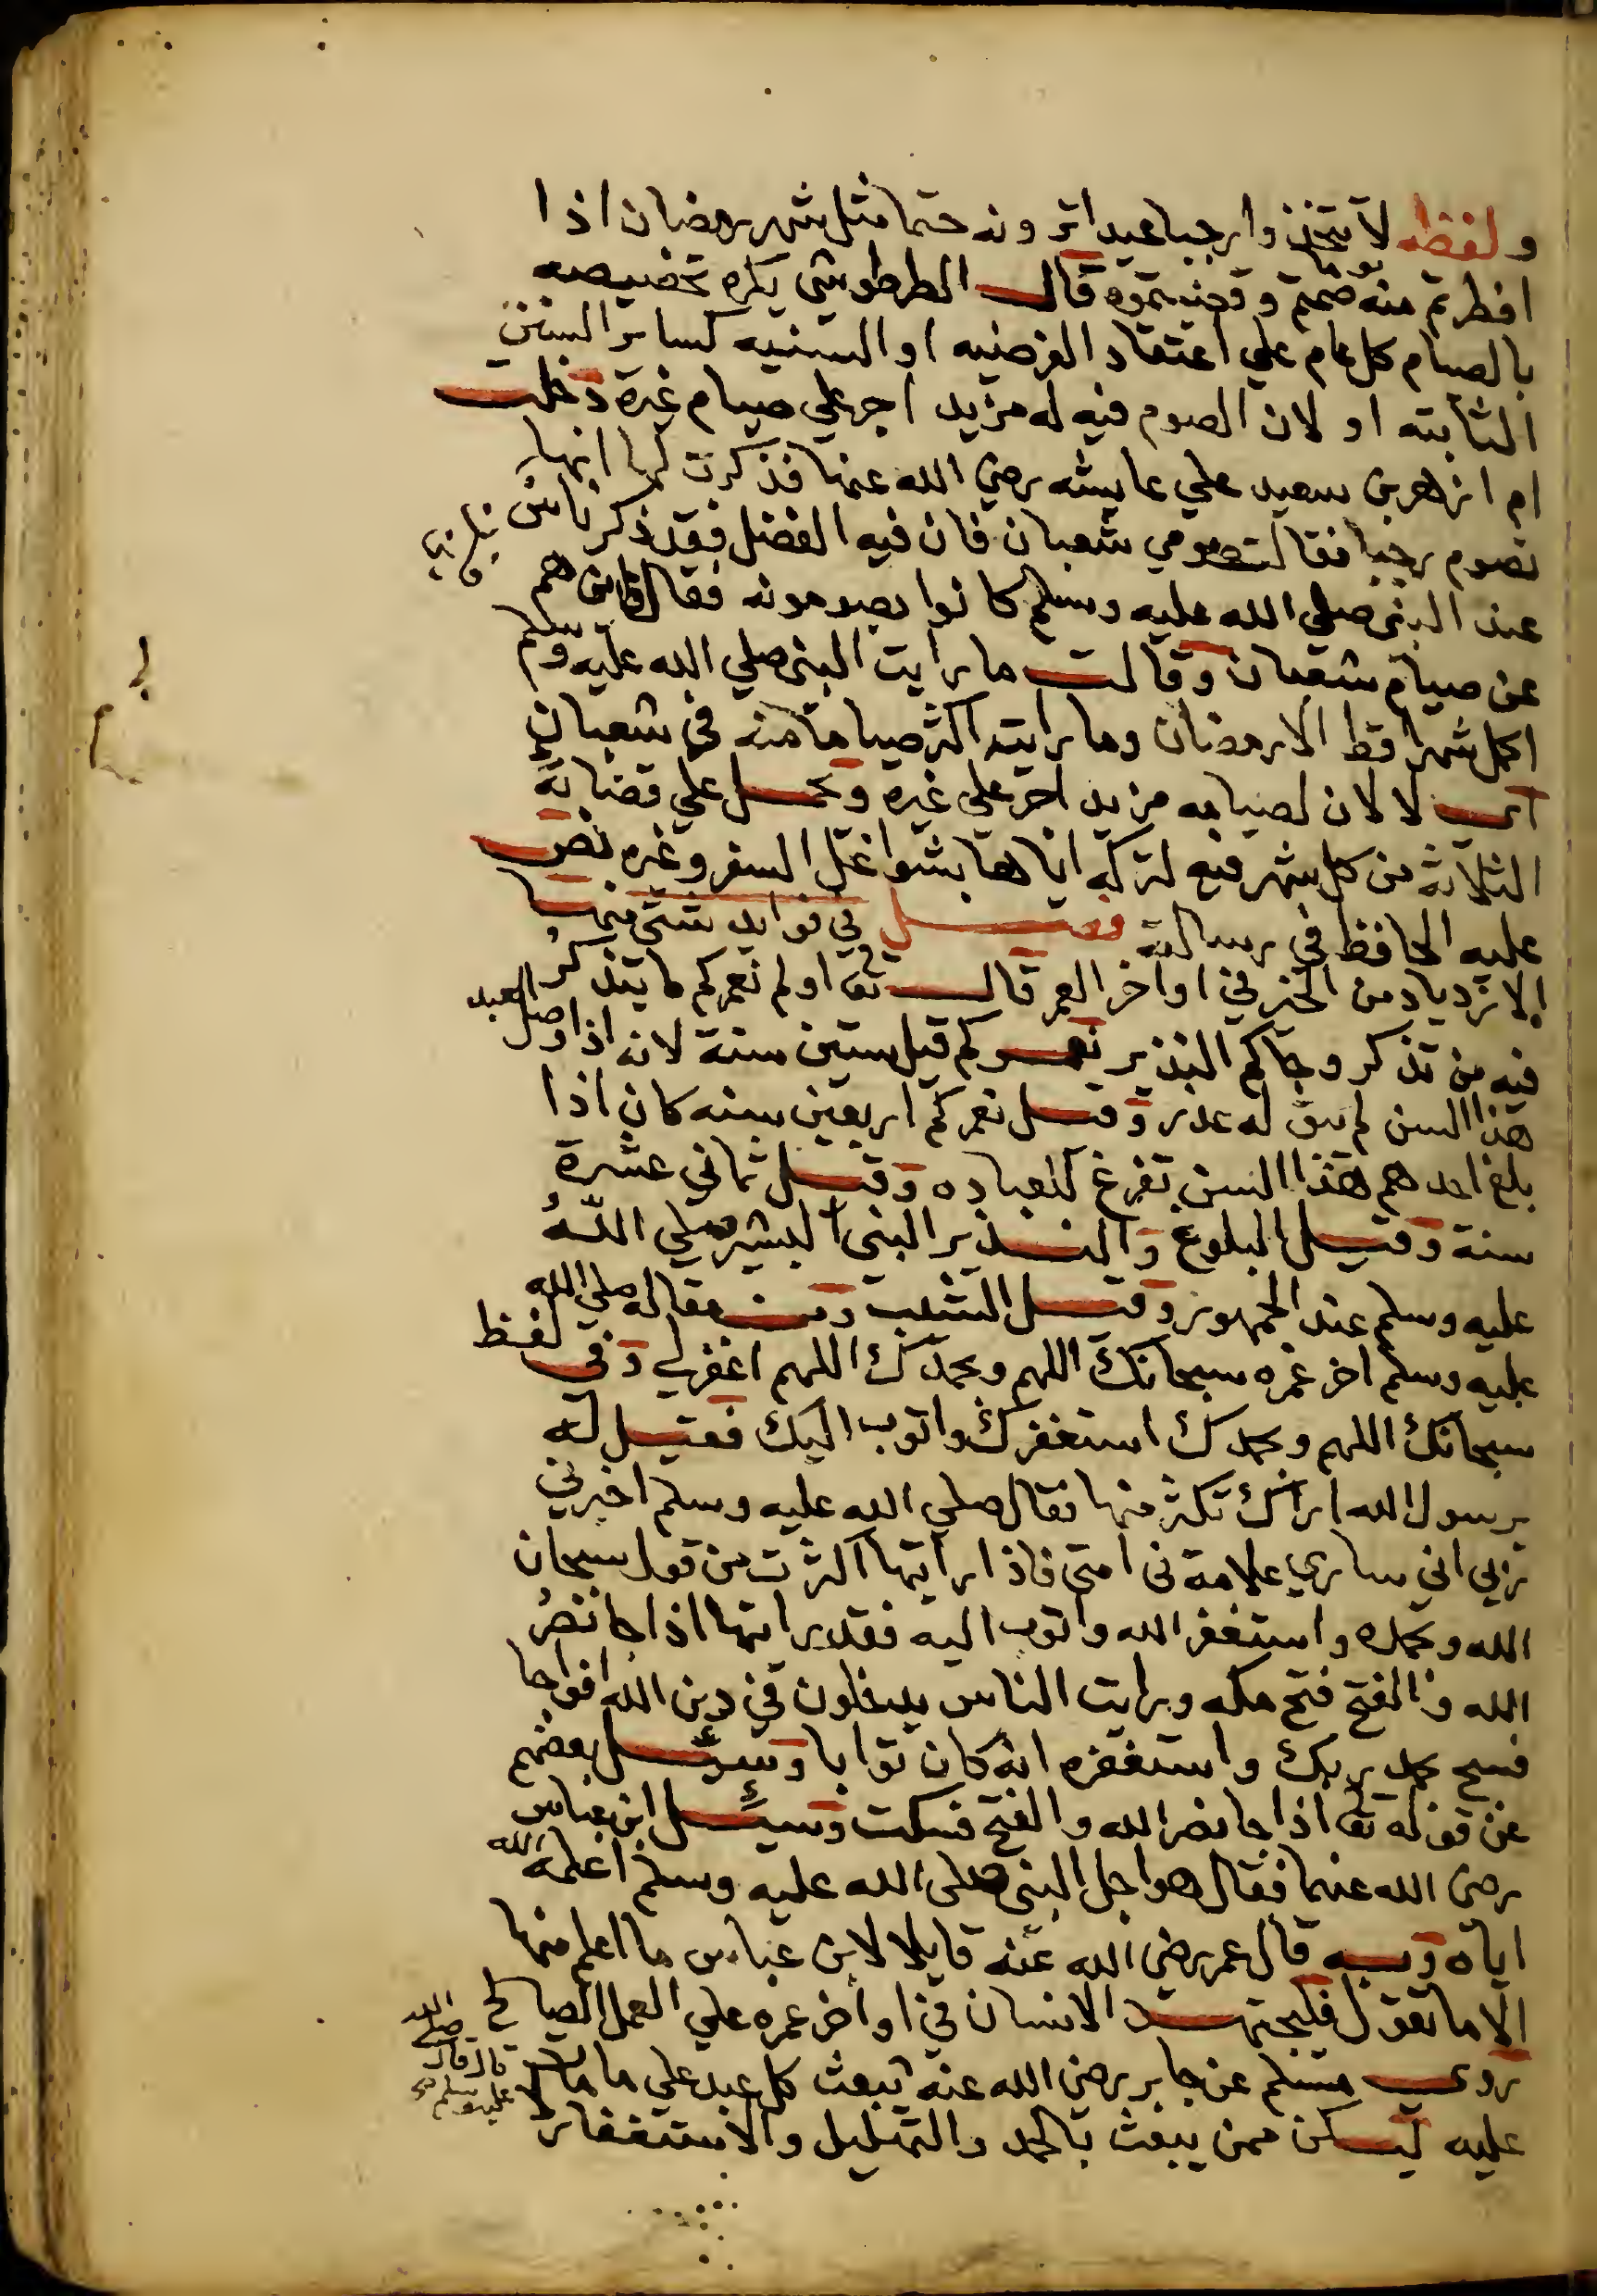 ولفظه لا تتخذوا رجبا عيدا ترونه حتما مثل شهر رمضان اذا
افطرتم منه صمتم وقضيتموه قال الطرطوشي يكره تخصيصه
يوما
بالصيام كل عام علي اعتقاد الفرضيه او السنيه كساير السنن
الثابته او لان الصوم فيه له مزيد اجر علي صيام غيره دخلت
ام ازهر بن سعيد علي عايشه رضي الله عنها فذكرت لها انها
تصوم رجبا فقالت صومي شعبان فان فيه الفضل فقد ذكر ناس
عند النبي صلي الله عليه وسلم كانوا يصومونه فقال فاين هم
عن صيام شعبان وقالت ما رايت النبي صلي الله عليه وسلم
اكمل شهرا قط الا رمضان وما رايته اكثر صياما منه في شعبان
اي لا لان لصيامه مزيد اجر علي غيره ويحمل علي قضايه
الثلاثة من كل شهر فيه لتركه اياها بشواغل السفر وغيره نص
عليه الحافظ في رسالته فصل في فوايد شتي منها
الازدياد من الخير في اواخر العمر قال تع اولم نعمركم ما يتذكر
فيه من تذكر وجاكم النذير نعمركم قيل ستين سنة لانه اذا وصل العبد
هذا السن لم يبق له عذر وقيل نعمركم اربعين سنه كان اذا
بلغ احدهم هذا السن تفرغ للعباده وقيل ثماني عشرة
سنة وقيل البلوغ والنذير النبي البشير صلي الله
عليه وسلم عند الجمهور وقيل الشيب ومن مقاله صلي الله
عليه وسلم اخر عمره سبحانك اللهم وبحمدك اللهم اغفرلي وفي لفظ
سبحانك اللهم وبحمدك استغفرك واتوب اليك فقيل له
يرسول الله اراك تكثر منها فقال صلي الله عليه وسلم اخبرني
ربي اني ساري علامة في امتي فاذا رايتها اكثرت من قول سبحان
الله وبحمده واستغفر الله واتوب اليه فقد رايتها اذا جا نصر
الله والفتح فتح مكه ورايت الناس يدخلون في دين الله افواجا
فسبح بحمد ربك واستغفره انه كان توابا وسئل بعضهم
عن قوله تع اذا جا نصر الله والفتح فسكت وسئل ابن عباس
رضي الله عنهما فقال هو اجل النبي صلي الله عليه وسلم اعلمه الله
اياه وبه قال عمر رضي الله عنه قايلا لابن عباس ما اعلم منها
الا ما تقول فليجتهد الانسان في اواخر عمره علي العمل الصالح
روي مسلم عن جابر رضي الله عنه يبعث كل عبد علي ما مات
قال قال صلي الله عليه وسلم
عليه ليكن ممن يبعث بالحمد والتهليل والاستغفار